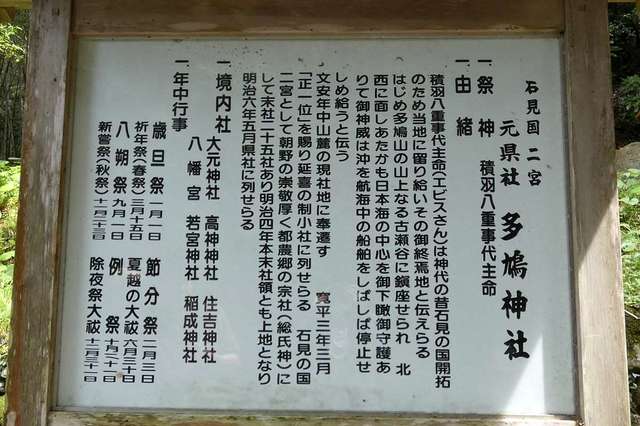 石見国 二宮
元県社 多鳩神社
一、祭神 積羽八重事代主命
一、由緒
積羽八重事代主命(エビスさん)は神代の昔石見の国開拓
のため当地に留り給いその御終焉地と伝えらる
はじめ多鳩山の山上なる古瀬谷に鎮座せられ 北
西に面しあたかも日本海の中心を御下瞰御守護あ
りて御神威は沖を航海中の船舶をしばしば停止せ
しめ給うと伝う
文安年中山麓の現社地に奉遷す 寛平三年三月
「正一位」を賜り延喜の制小社に列せらる 石見の国
二宮として朝野の崇敬厚く都農郷の宗社(総氏神)に
して末社二十五社あり明治四年本末社領とも上地となり
明治六年五月県社に列せらる
一、境内社 大元神社 高神神社 住吉神社
八幡宮 若宮神社 稲成神社
一、年中行事
歳旦祭 一月一日 節分祭 二月三日
祈年祭(春祭)三月十五日 夏越の大祓 六月三十日
八朔祭 九月一日 例祭
新嘗祭(秋祭)十一月二十三日 除夜祭大祓 十二月三十一日